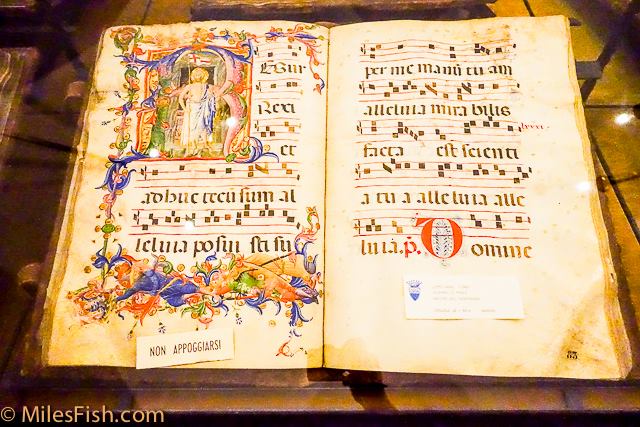 ESur
Rexi
et
adhuc tecū sum al
leluia posui sti su
NON APPOGGIARSI
per me manū tu am
alleluia mira bilis
facta est scienti
a tu a alleluia alle
luia. p̄. Domine
© MilesFish.com